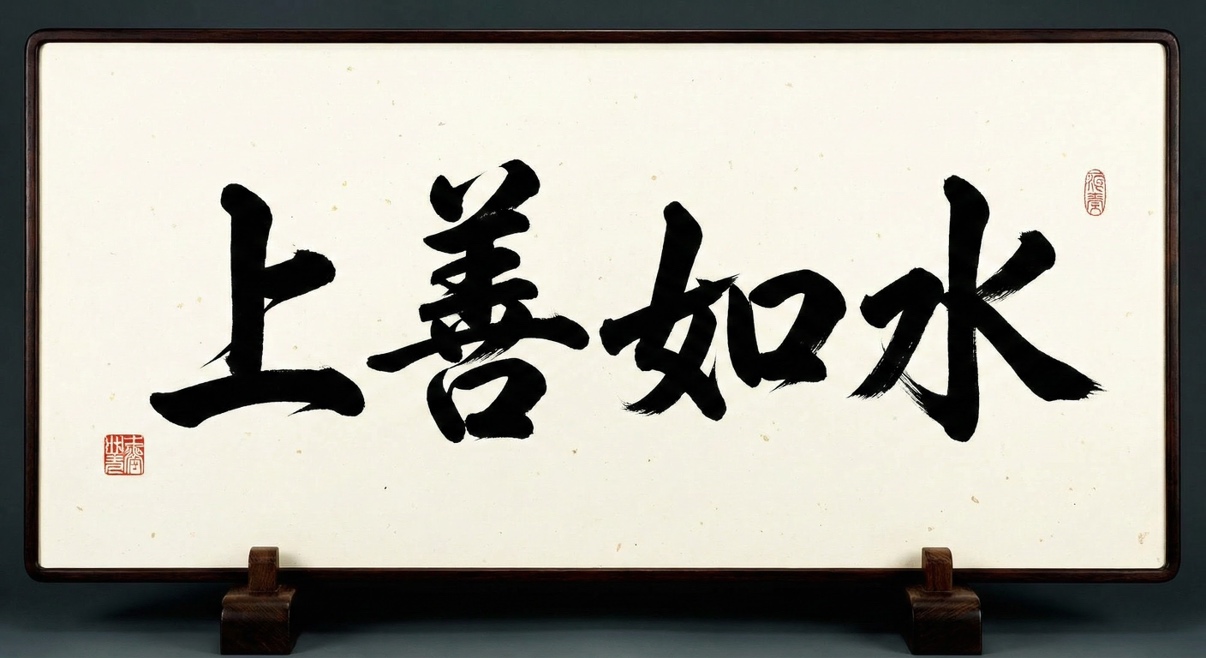 上善如水